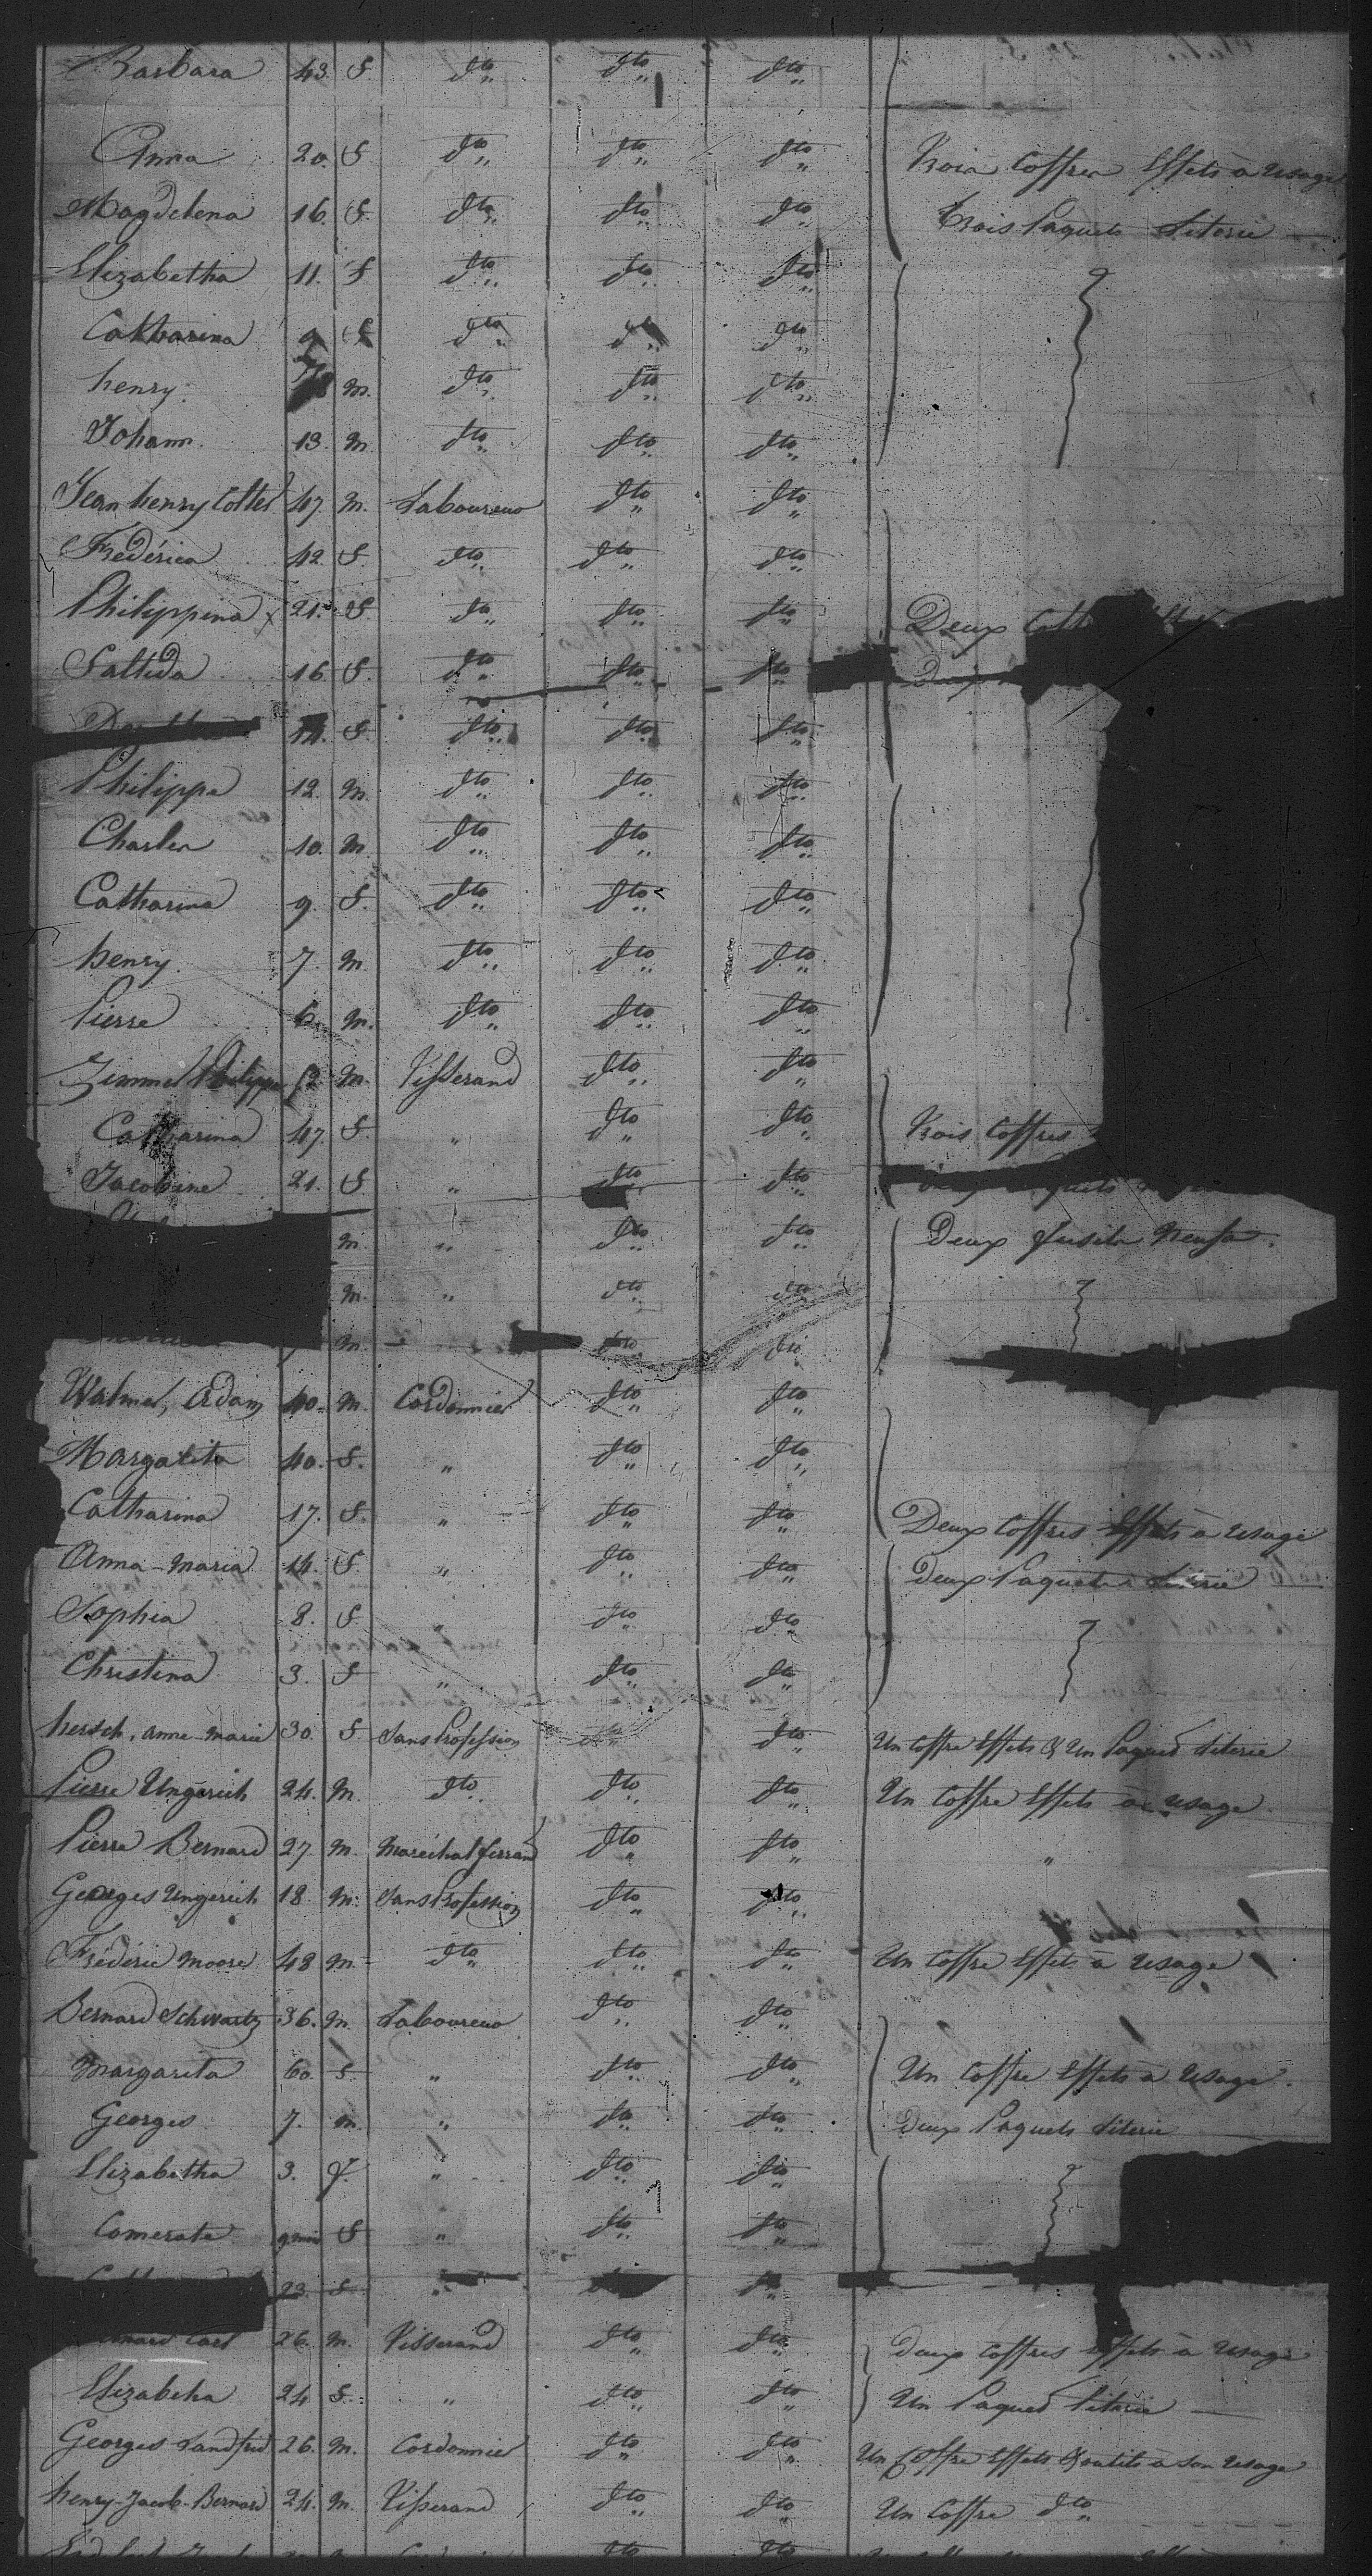 Barbara 43. f. dto dto dto
Anna 20. f dto dto dto Trois Coffres Effets à usage
Magdelena 16. f. dto dto dto Trois Paquets Literie
Elizabetha 11. f dto dto dto
Catharina 9 f dto dto dto
henry. m. dto dto dto
Johann 13. m. dto dto dto
Jean henry Cotter 47. m. Laboureur dto dto
Frédérica 42. f. dto dto dto
Philippina 21. f. dto dto dto Deux
16. f. dto dto dto Deux
f. dto dto dto
Philippe 12. m. dto dto dto
Charles 10. m. dto dto dto
Catharina 9. f. dto dto dto
henry. 7. m. dto dto dto
Pierre 6. m. dto dto dto
Zimmel Philippe 52 m. Tisserand dto dto
Catharina 47. f. " dto dto Trois Coffres
Jacobine 21. f. " dto dto
m. " dto dto Deux fusils Neufs.
m. " dto dto
m. dto dto
Adam 40. m. Cordonnier dto dto
Margarita 40. f. " dto dto
Catharina 17. f. " dto dto Deux Coffres Effets à usage
Anna-Maria 14. f. " dto dto deux Paquets Literie
Sophia 8. f. " dto dto
Christina 3. f " dto dto
hersch, anne-marie 30. f Sans Profession dto dto Un Coffre Effets & Un Paquet Literie
Pierre Ungerich 24. m. dto dto dto Un Coffre Effets à usage
Pierre Bernard 27. m. Maréchal ferrand dto dto "
Georges Ungerich 18. m. Sans Profession dto dto
Frédéric Moore 48 m. dto dto dto Un Coffre Effets à usage
Bernard Schwartz 36. m. Laboureur dto dto
Margarita 60. f. " dto dto Un Coffre Effets à Usage.
Georges 7. m. " dto dto deux Paquets Literie
Elizabetha 3. f. " dto dto
9 mois f " dto dto
23. f " dto
Carl 26. m. Tisserand dto dto deux Coffres effets à usage
Elizabetha 24 f. " dto dto Un Paquet Literie
Georges Landfrid 26. m. Cordonnier dto dto Un Coffre Effets & outils à son usage
henry-Jacob-Bernard 24. m. Tisserand dto dto Un Coffre dto